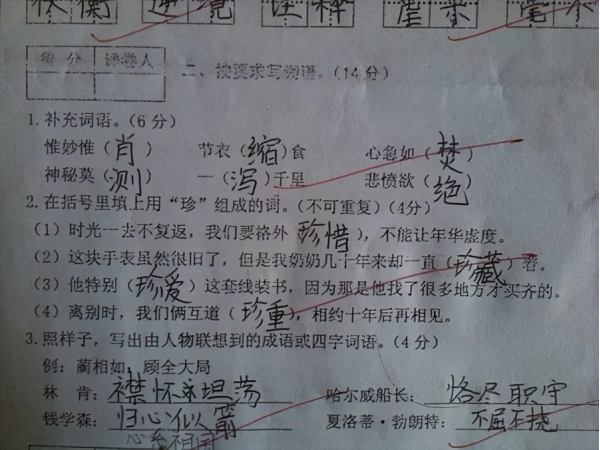 得 分 评卷人
二、按要求写词语。(14分)
1.补充词语。(6分)
惟妙惟(肖) 节衣(缩)食 心急如(焚)
神秘莫(测) 一(泻)千里 悲愤欲(绝)
2.在括号里填上用“珍”组成的词。(不可重复)(4分)
(1)时光一去不复返,我们要格外(珍惜),不能让年华虚度。
(2)这块手表虽然很旧了,但是我奶奶几十年来却一直(珍藏)着。
(3)他特别(珍爱)这套线装书,因为那是他找了很多地方才买齐的。
(4)离别时,我们俩互道(珍重),相约十年后再相见。
3.照样子,写出由人物联想到的成语或四字词语。(4分)
例:蔺相如:顾全大局
林 肯:襟怀坦荡 哈尔威船长:恪尽职守
钱学森:归心似箭 夏洛蒂·勃朗特:不屈不挠
心系祖国